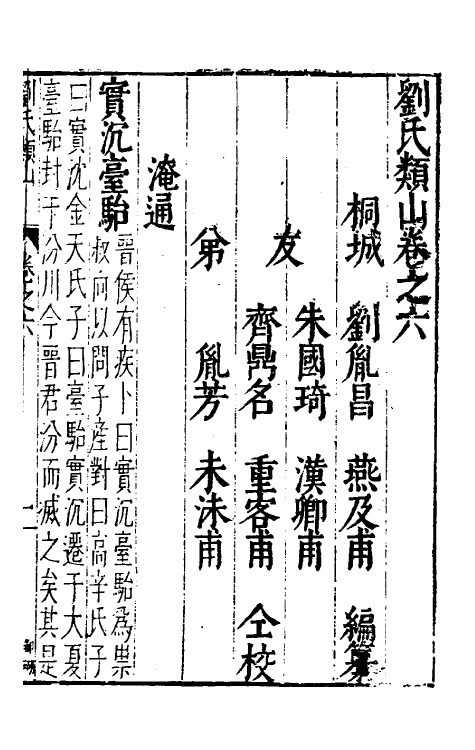 劉氏類山卷之六
桐城 劉胤昌 燕及甫 編纂
朱國琦 漢卿甫
友
齊鼎名 重客甫 仝校
弟 胤芳 未沬甫
淹通
實沉臺駘
晉侯有疾卜曰實沉臺駘為祟
叔向以問子產對曰高辛氏子
曰實沈金天氏子曰臺駘實沉遷于大夏
臺駘封于汾川今晉君汾而滅之矣其是
劉氏類山 卷之六 一